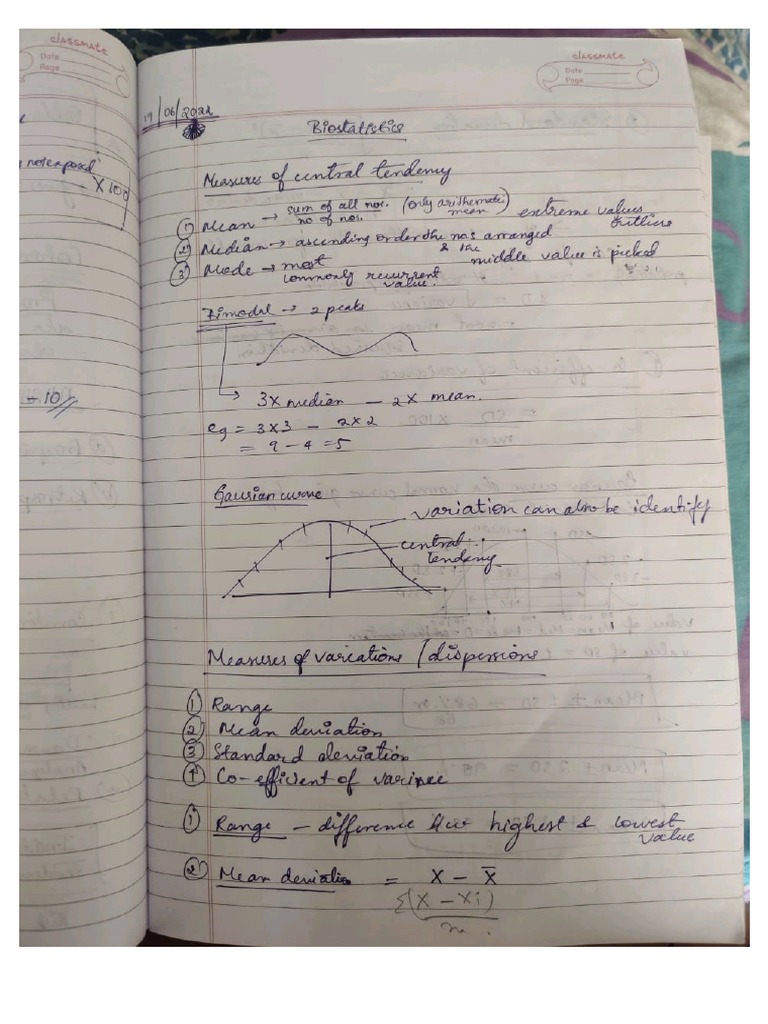 classmate
Date
Page
not exposed
X 100
= 10
classmate
Date
Page
19/06/2022
Biostatistics
Measures of central tendency
① Mean → sum of all nos. / no of nos. (only arithematic mean) extreme values outliers
② Median → ascending order the nos arranged & the middle value is picked
③ Mode → most commonly recurrent value.
Bimodal → 2 peaks
→ 3x median - 2x mean.
eg = 3x3 - 2x2
= 9 - 4 = 5
Gaussian curve
variation can also be identify
central tendency
Measures of variations / dispersions
① Range
② Mean deviation
③ Standard deviation
④ Co-efficient of varince
① Range - difference b/w highest & lowest value
② Mean deviatio = X - X̄
Σ(X - Xi)
n.